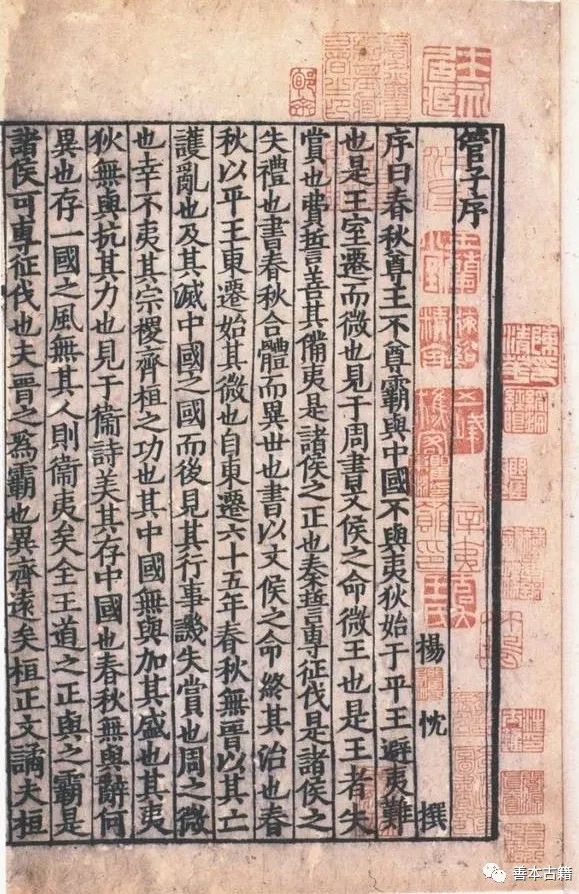 管子序
楊忱撰
序曰春秋尊王不尊霸與中國不與夷狄始于平王避夷難
也是王室遷而微也見于周書文侯之命微王也是王者失
賞也費誓善其備夷是諸侯之正也秦誓專征伐是諸侯之
失禮也書春秋合體而異世也書以文侯之命終其治也春
秋以平王東遷始其微也自東遷六十五年春秋無晉以其亡
護亂也及其滅中國之國而後見其行事譏失賞也周之微
也幸不夷其宗稷齊桓之功也其中國無與加其盛也其夷
狄無與抗其力也見于衞詩美其存中國也春秋無與辭何
異也存一國之風無其人則衞夷矣全王道之正與之霸是
諸侯可專征伐也夫晉之爲霸也異齊遠矣桓正文譎夫桓
善本古籍